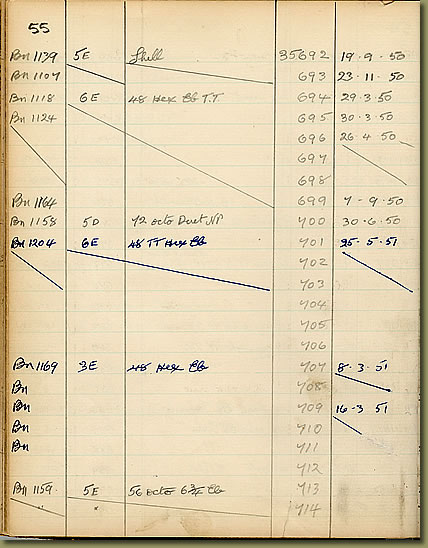 55
Bn 1139 5E Shell 35692 19-9-50
Bn 1107 693 23-11-50
Bn 1118 6E 48 Hex Eb T.T 694 29.3.50
Bn 1124 695 30.3.50
696 26.4.50
697
698
Bn 1164 699 7-9-50
Bn 1158 5D 72 octo Duet NP 700 30-6.50
Bn 1204 6E 48 TT Hex Eb 701 25.5.51
702
703
704
705
706
Bn 1169 3E 48 Hex Eb 707 8.3.51
Bn 708
Bn 709 16-3 51
Bn 710
Bn 711
712
Bn 1159 5E 56 octo 6¾ Eb 713
714